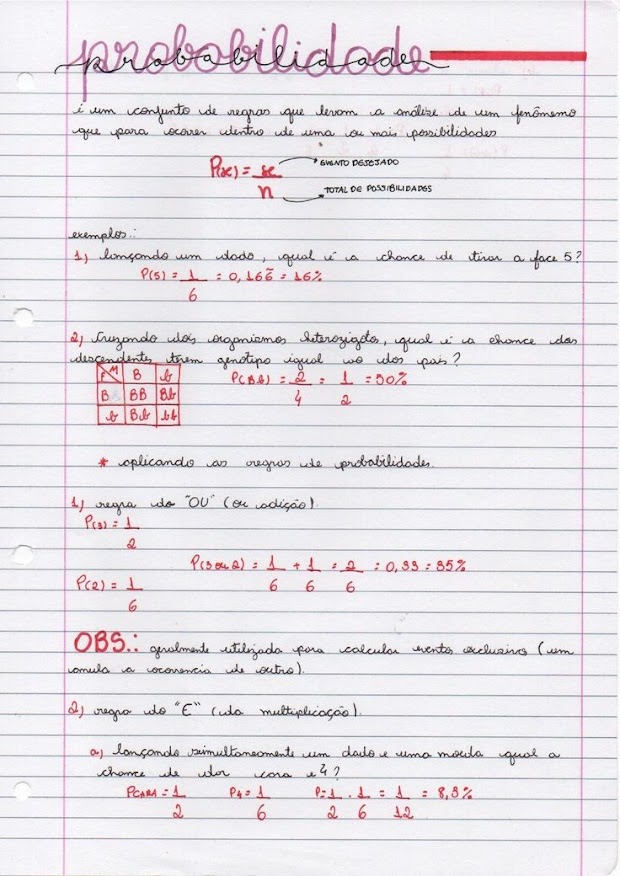 probabilidade
é um conjunto de regras que levam a análize de um fenômeno
que para ocorrer dentro de uma ou mais possibilidades
P(x) = x → EVENTO DESEJADO
n → TOTAL DE POSSIBILIDADES
exemplos.:
1) lançando um dado, qual é a chance de tirar a face 5?
P(5) = 1 = 0,166̄ = 16%
6
2) Cruzando dois organismos heterozigotos, qual é a chance dos
descendentes terem genotipo igual ao dos pais?
F M B b
B BB Bb
b Bb bb
P(Bb) = 2 = 1 = 50%
4 2
* aplicando as regras de probabilidades.
1) regra do "OU" (ou adição)
P(3) = 1
2
P(3 ou 2) = 1 + 1 = 2 = 0,33 = 35%
6 6 6
P(2) = 1
6
OBS.: geralmente utilizada para calcular eventos exclusivos (um
anula a ocorrencia de outro).
2) regra do "E" (da multiplicação).
a) lançando simultaneamente um dado e uma moeda qual a
chance de dar cara e 4?
PCARA = 1 P4 = 1 P = 1 . 1 = 1 = 8,3%
2 6 2 6 12